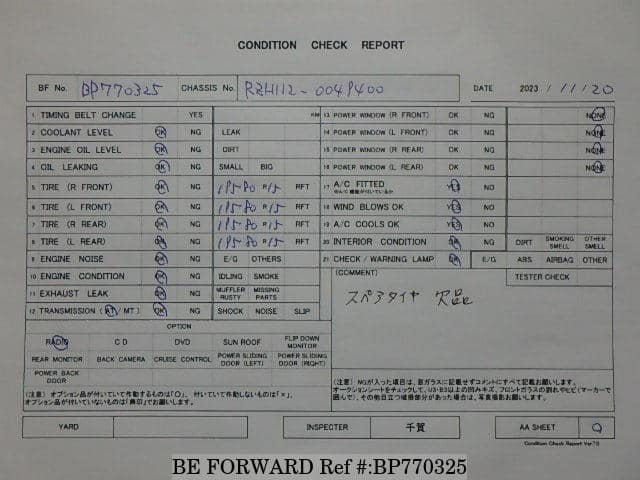 CONDITION CHECK REPORT
BF No. BP770325 CHASSIS No. RZH112-0049400 DATE 2023 / 11 / 20
1 TIMING BELT CHANGE YES KM 13 POWER WINDOW (R FRONT) OK NG NONE
2 COOLANT LEVEL OK NG LEAK 14 POWER WINDOW (L FRONT) OK NG NONE
3 ENGINE OIL LEVEL OK NG DIRT 15 POWER WINDOW (R REAR) OK NG NONE
4 OIL LEAKING OK NG SMALL BIG 16 POWER WINDOW (L REAR) OK NG NONE
5 TIRE (R FRONT) OK NG 195 80 R15 RFT 17 A/C FITTED YES NO
6 TIRE (L FRONT) OK NG 195 80 R15 RFT 18 WIND BLOWS OK YES NO
7 TIRE (R REAR) OK NG 195 80 R15 RFT 19 A/C COOLS OK YES NO
8 TIRE (L REAR) OK NG 195 80 R15 RFT 20 INTERIOR CONDITION OK NG DIRT SMOKING SMELL OTHER SMELL
9 ENGINE NOISE OK NG E/G OTHERS 21 CHECK / WARNING LAMP OK E/G ABS AIRBAG OTHER
10 ENGINE CONDITION OK NG IDLING SMOKE (COMMENT) TESTER CHECK
11 EXHAUST LEAK OK NG MUFFLER RUSTY MISSING PARTS スペアタイヤ 欠品
12 TRANSMISSION (AT / MT) OK NG SHOCK NOISE SLIP
OPTION
RADIO CD DVD SUN ROOF FLIP DOWN MONITOR
REAR MONITOR BACK CAMERA CRUISE CONTROL POWER SLIDING DOOR (LEFT) POWER SLIDING DOOR (RIGHT)
POWER BACK DOOR
(注意) オプション品が付いていて作動するものは「○」、付いていて作動しないものは「×」、
オプション品が付いていないものは「無印」でお願いします。
(注意) NGが入った項目は、窓ガラスに記載せずコメントにすべて記載お願いします。
オークションシートをチェックして、U3・B3以上の凹みキズ、フロントガラスの割れやヒビ(マーカーで
囲んで)、その他目立つ破損部分があった場合は、写真撮影お願いします。
YARD INSPECTER 千賀 AA SHEET
Condition Check Report Ver.7.8
BE FORWARD Ref #:BP770325